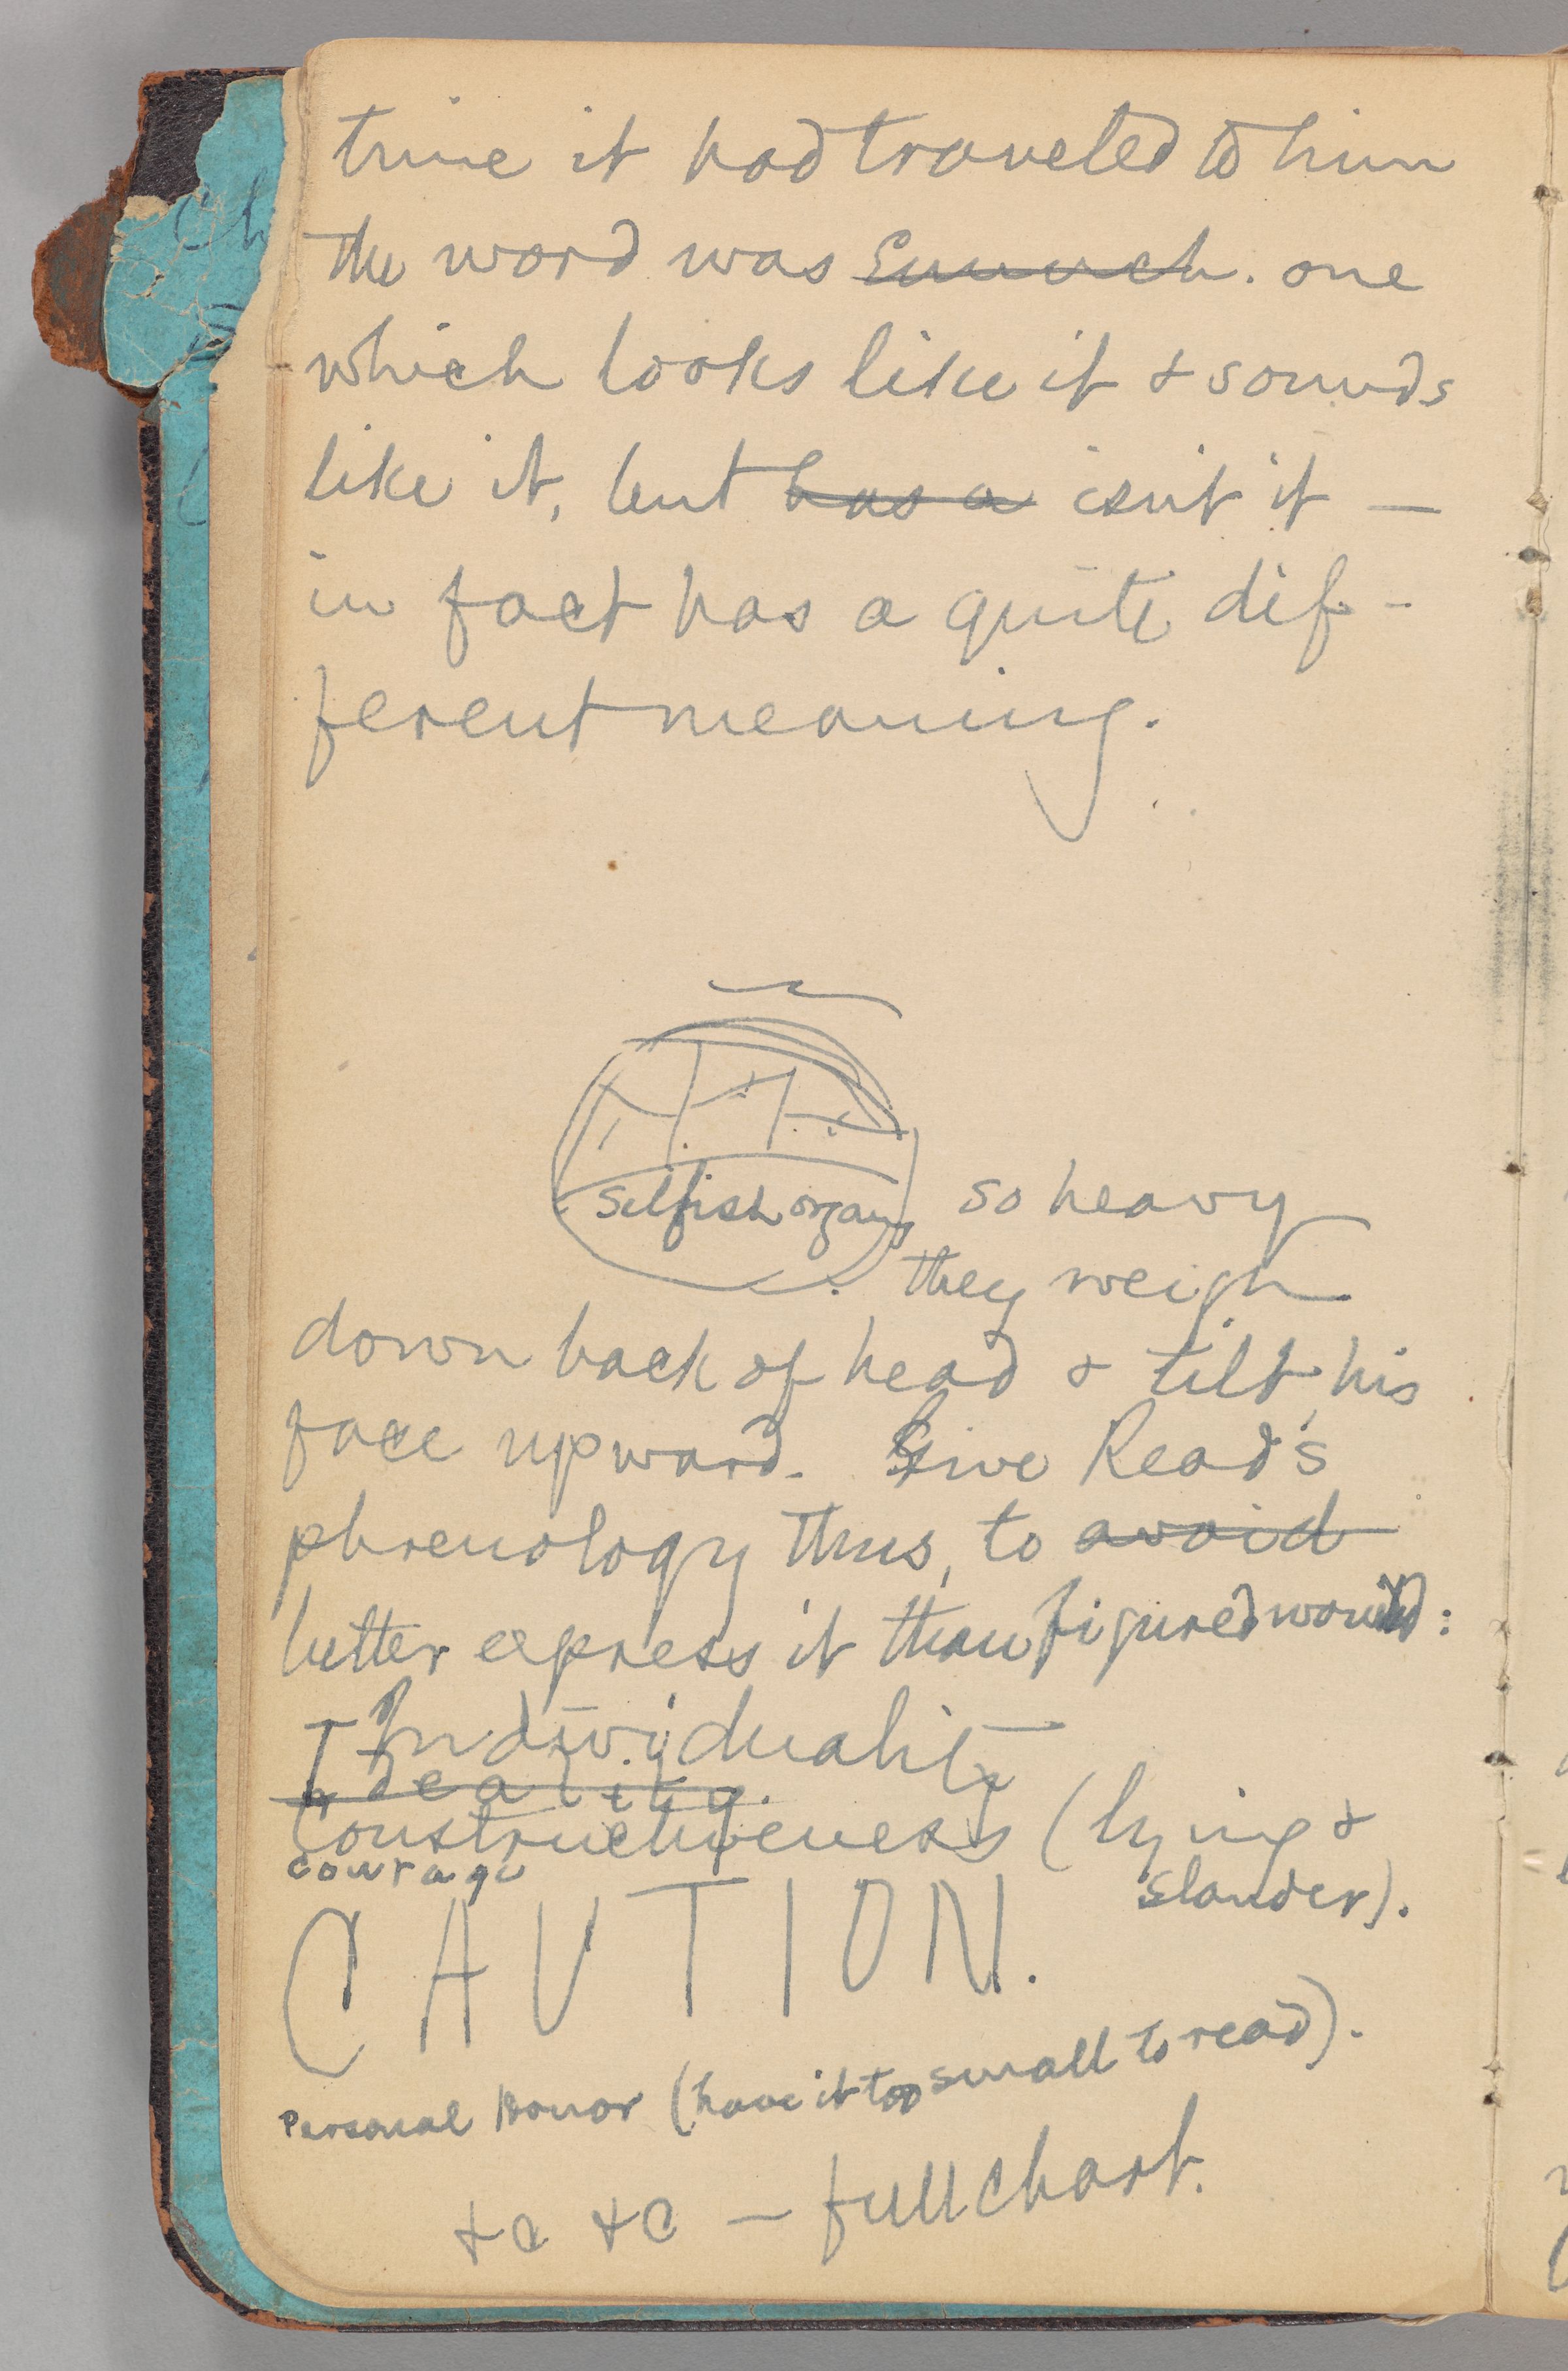 time it had traveled to him
the word was Eunuch. one
which looks like it & sounds
like it, but has a isn't it —
in fact has a quite dif-
ferent meaning.
Selfish organs so heavy
they weigh
down back of head & tilt his
face upward. Give Read's
phrenology thus, to avoid
better express it than figured would:
Individuality
Ideality.
Constructiveness (lying &
slander).
Courage
CAUTION.
Personal Honor (have it too small to read).
&c &c — full chart.